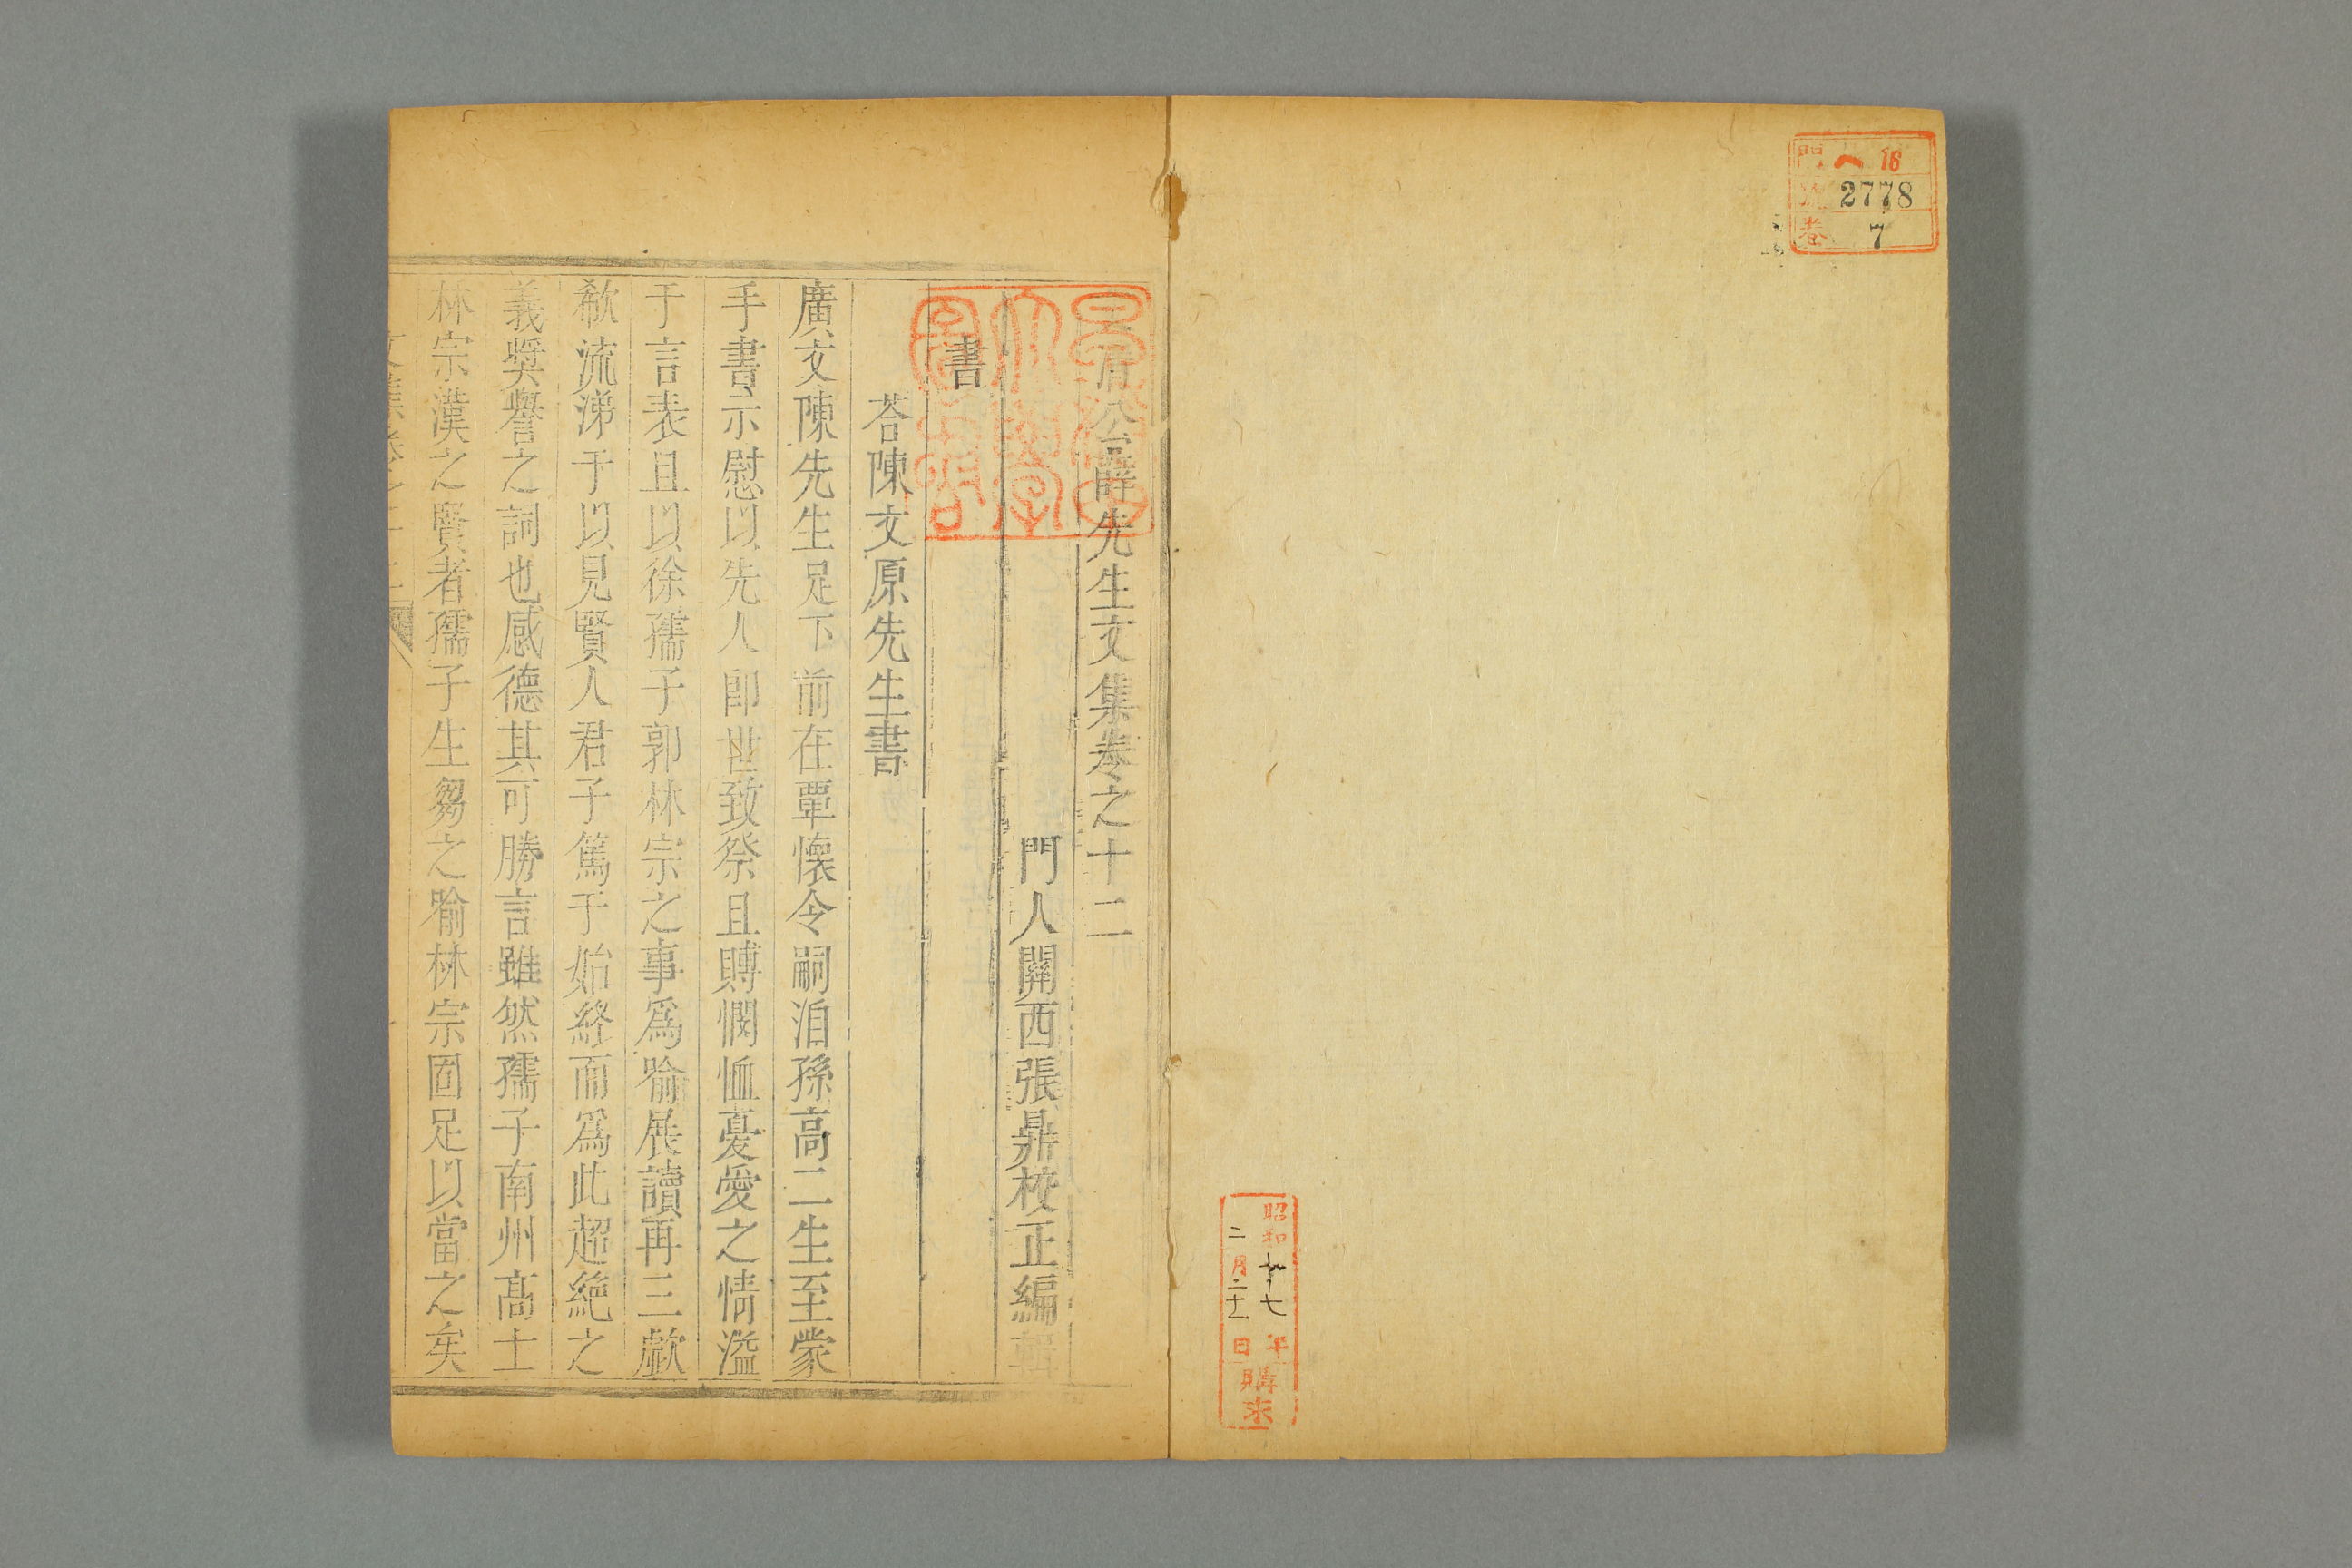 門 ヘ 16
號 2778
卷 7
昭和十七年
二月二十一日
購求
公薛先生文集卷之十二
門人關西張鼎校正編輯
書
荅陳文原先生書
廣文陳先生足下前在覃懷令嗣洎孫高二生至蒙
手書示慰以先人卽世致祭且賻憫恤憂愛之情溢
于言表且以徐孺子郭林宗之事爲喻展讀再三歔
欷流涕于以見賢人君子篤于始終而爲此超絶之
義奨譽之詞也感德其可勝言雖然孺子南州髙士
林宗漢之賢者孺子生芻之喻林宗固足以當之矣
文集卷之十二